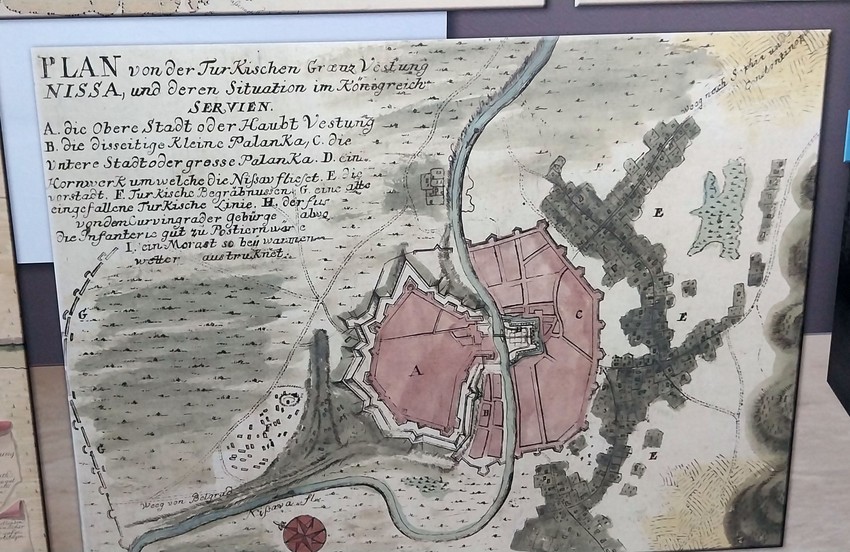 PLAN von der Turkischen Grænz Vestung
NISSA, und deren Situation im Königreich
SERVIEN.
A. die Obere Stadt oder Haubt Vestung
B. die disseitige Kleine Palanka, C. die
Vntere Stadt oder grosse Palanka. D. ein
Hornwerk um welche die Nißav flieset. E. die
vorstadt. F. Turkische Begräbnussen, G. eine alte
eingefallene Turkische Linie. H. der fus
von dem Curvingrader gebürge alwo
die Infanterie gut zu Postiern ware
I. ein Morast so beÿ warmen
wetter austruknet.
weeg nach Sophia und
G
A
C
B
E
E
E
G
Weeg von Belgrad
Nißava fl.